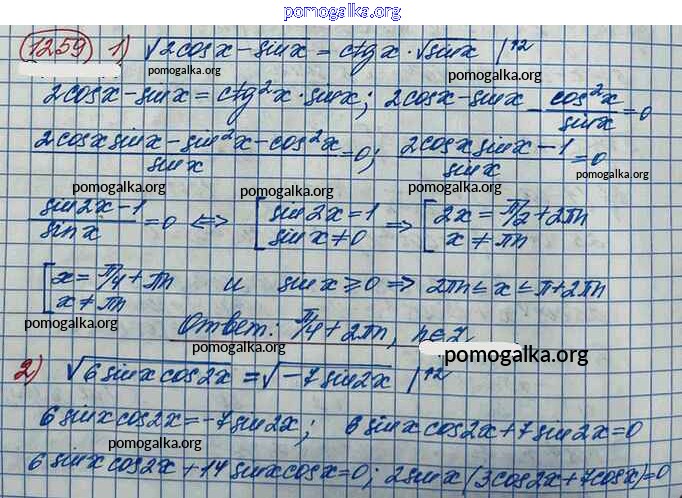 pomogalka.org
1259 1) √2cosx-sinx = ctgx·√sinx |^2
pomogalka.org pomogalka.org
2cosx-sinx = ctg²x·sinx; 2cosx-sinx - cos²x/sinx = 0
pomogalka.org
(2cosxsinx-sin²x-cos²x)/sinx = 0; (2cosxsinx-1)/sinx = 0
pomogalka.org pomogalka.org pomogalka.org
(sin2x-1)/sinx = 0 ⇔ [sin2x=1 sinx≠0 ⇒ [2x=π/2+2πn x≠πn
pomogalka.org pomogalka.org
[x=π/4+πn x≠πn и sinx≥0 ⇒ 2πn≤x≤π+2πn
pomogalka.org
Ответ: π/4+2πn, n∈Z
pomogalka.org
2) √6sinxcos2x = √-7sin2x |^2
pomogalka.org
6sinxcos2x=-7sin2x; 6sinxcos2x+7sin2x=0
pomogalka.org
6sinxcos2x+14sinxcosx=0; 2sinx(3cos2x+7cosx)=0
pomogalka.org